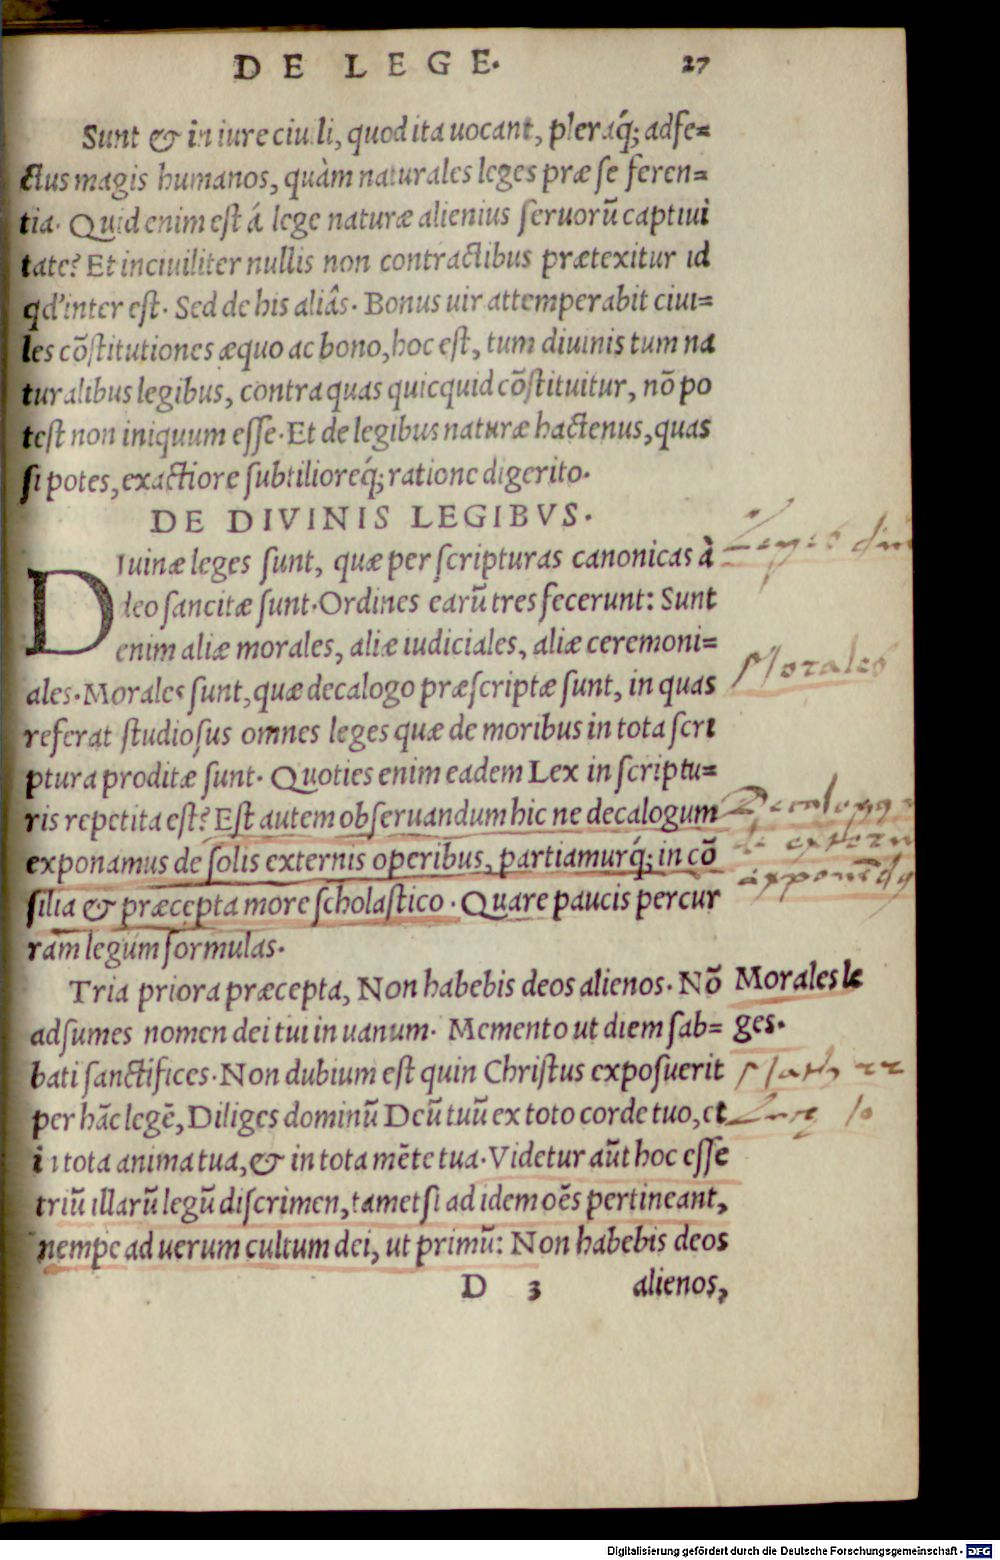 DE LEGE. 27
Sunt & in iure ciuili, quod ita uocant, pleraq́; adfe=
ctus magis humanos, quàm naturales leges præ se feren=
tia. Quid enim est á lege naturæ alienius seruorũ captiui
tate? Et inciuiliter nullis non contractibus prætexitur id
qd' inter est. Sed de his aliâs. Bonus uir attemperabit ciui=
les cõstitutiones æquo ac bono, hoc est, tum diuinis tum na
turalibus legibus, contra quas quicquid cõstituitur, nõ po
test non iniquum esse. Et de legibus naturæ hactenus, quas
si potes, exactiore subtilioreq́; ratione digerito.
DE DIVINIS LEGIBVS.
Leges
DIuinæ leges sunt, quæ per scripturas canonicas à
deo sancitæ sunt. Ordines earũ tres fecerunt: Sunt
enim aliæ morales, aliæ iudiciales, aliæ ceremoni=
Morales
ales. Morales sunt, quæ decalogo præscriptæ sunt, in quas
referat studiosus omnes leges quæ de moribus in tota scri
ptura proditæ sunt. Quoties enim eadem Lex in scriptu=
ris repetita est? Est autem obseruandum hic ne decalogum
exponamus de solis externis operibus, partiamurq́; in cõ
silia & præcepta more scholastico. Quare paucis percur
ram legum formulas.
Tria priora præcepta, Non habebis deos alienos. Nõ
Morales le
adsumes nomen dei tui in uanum. Memento ut diem sab=
ges.
bati sanctifices. Non dubium est quin Christus exposuerit
Math 22
per hãc legẽ, Diliges dominũ Deũ tuũ ex toto corde tuo, et
Luc 10
in tota anima tua, & in tota mẽte tua. Videtur aũt hoc esse
triũ illarũ legũ discrimen, tametsi ad idem oẽs pertineant,
nempe ad uerum cultum dei, ut primũ: Non habebis deos
D 3 alienos,
Digitalisierung gefördert durch die Deutsche Forschungsgemeinschaft - DFG